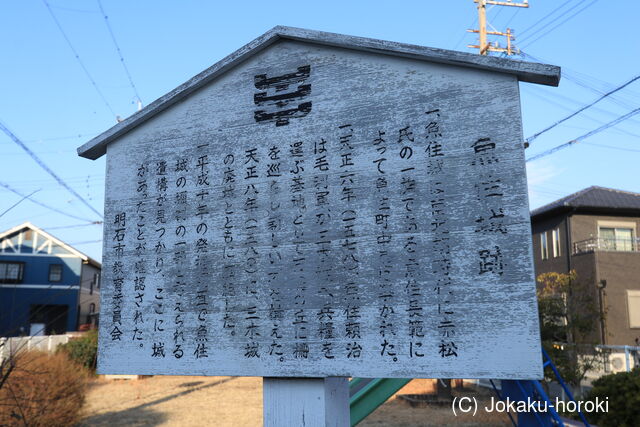 魚住城跡
一、魚住城は南北朝時代に赤松
氏の一族である魚住長範に
よって魚住町中尾に
一、天正六年(一五七八)魚住頼治
は毛利軍が三木城へ兵糧を
運ぶ基地として の丘に柵
を巡らし新しい を構えた。
天正八年(一五八〇)に三木城
の落城とともに した。
一、平成十年の発掘調査で魚住
城の堀跡の一部と考えられる
遺構が見つかり、ここに城
があったことが確認された。
明石市教育委員会
(C) Jokaku-horoki